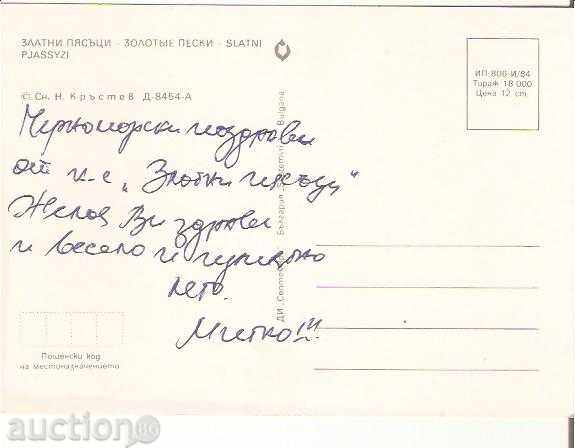 ЗЛАТНИ ПЯСЪЦИ - ЗОЛОТЫЕ ПЕСКИ - SLATNI
PJASSYZI
© Сн. Н. Кръстев Д-8454-А
ИП-800-И/84
Тираж 18 000
Цена 12 ст.
Черноморски поздрави
от к-с "Златни пясъци"
Желая Ви здраве
и весело и
лето.
Митко!!!
ДИ „Септември" България Bulgaria
Пощенски код
на местоназначението
auction BG